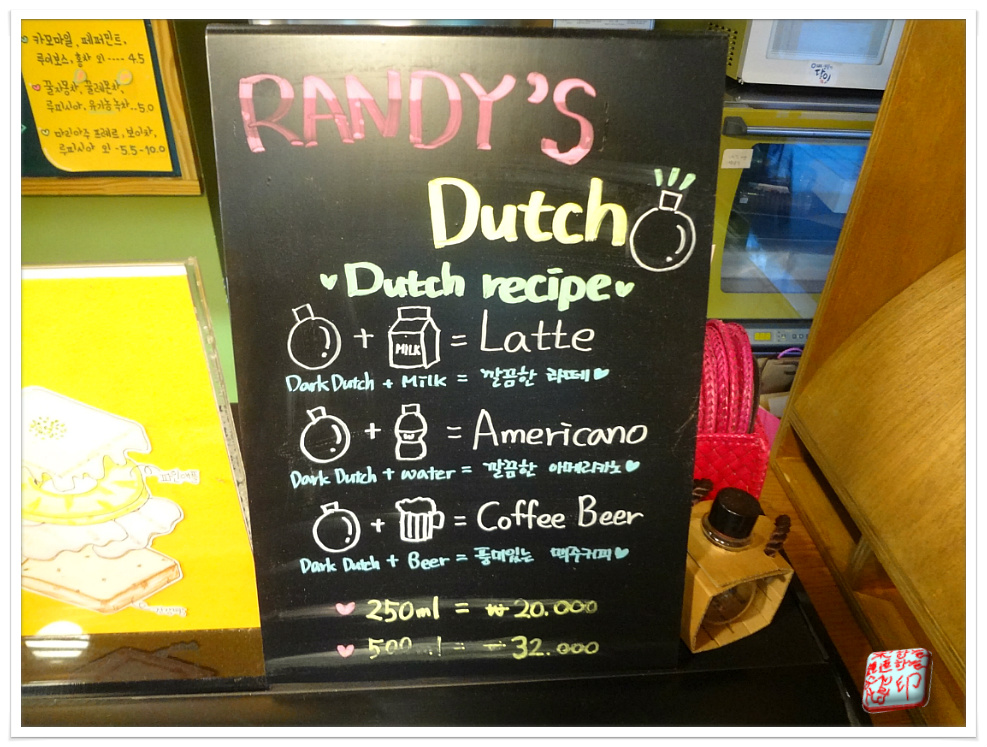 카모마일, 페퍼민트,
루이보스, 홍차 외 ---- 4.5
꿀자몽차, 꿀레몬차,
루피시아, 유기농녹차..5.0
마리아쥬 프레르, 보이차,
루피시아 외 -5.5-10.0
RANDY'S
Dutch
Dutch recipe
+ MILK = Latte
Dark Dutch + Milk = 깔끔한 라떼
+ = Americano
Dark Dutch + water = 깔끔한 아메리카노
+ = Coffee Beer
Dark Dutch + Beer = 풍미있는 맥주커피
250ml = ₩20.000
500ml = ₩32.000